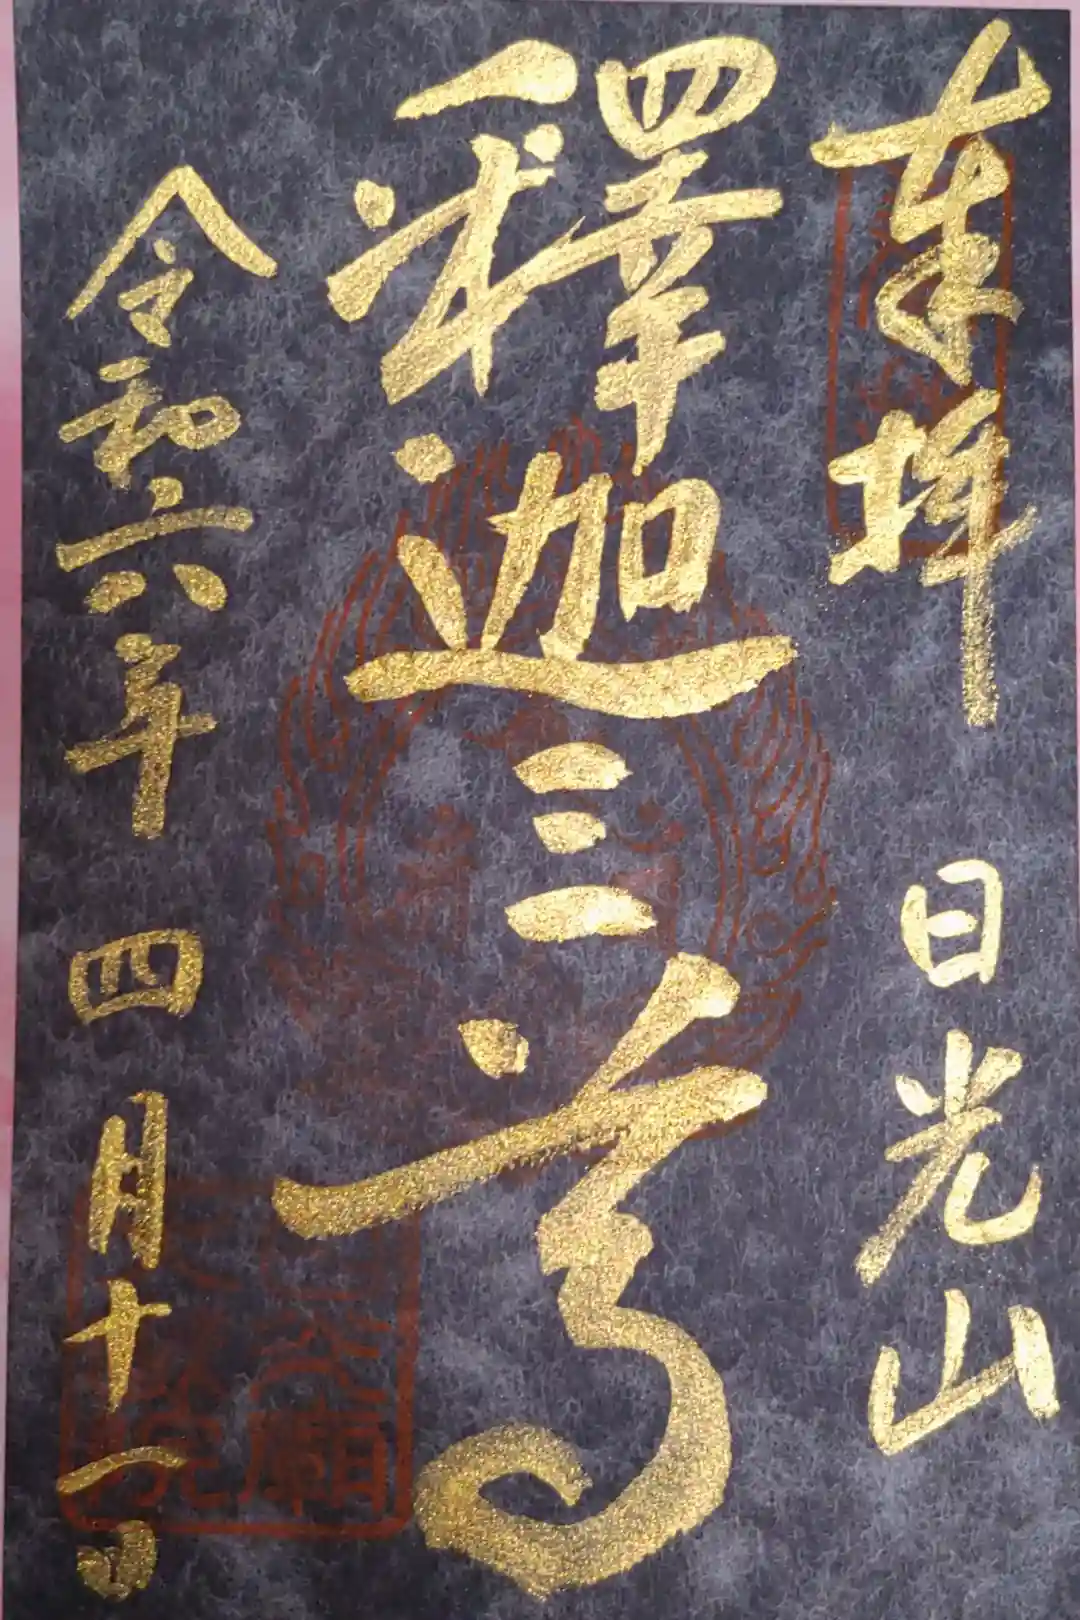 奉拝 日光山
釋迦三尊
令和六年 四月十一日